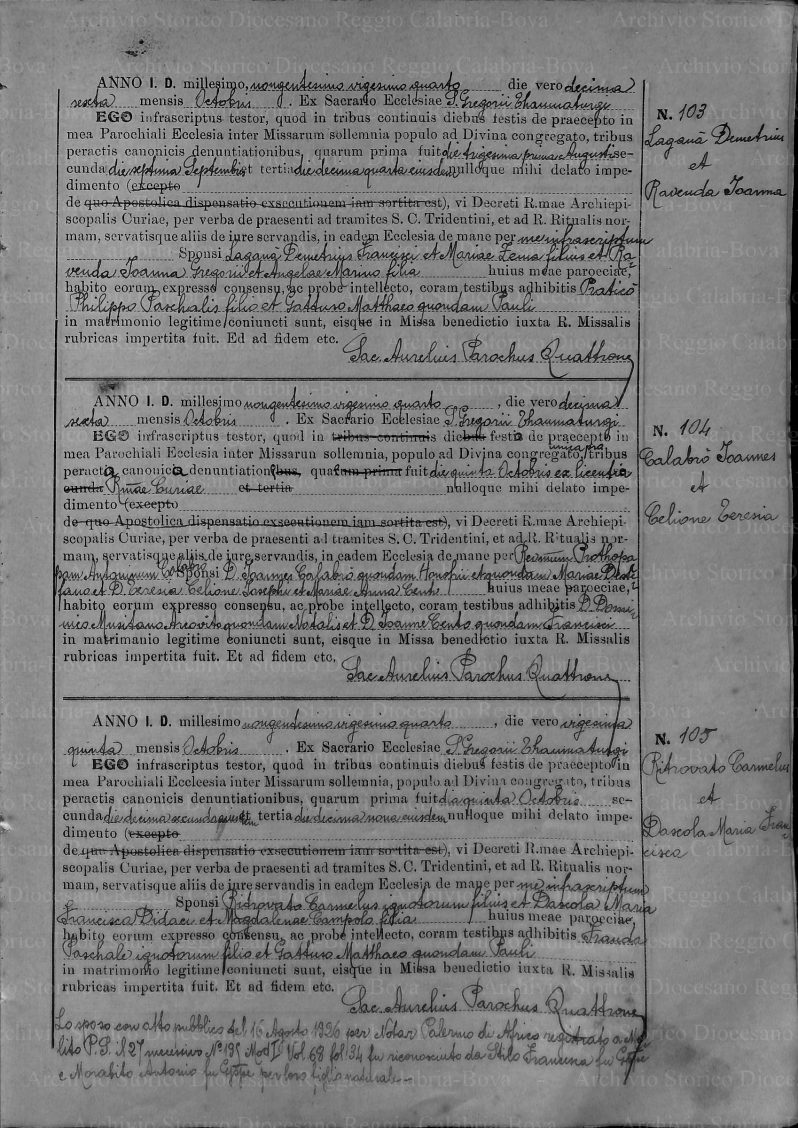 Archivio Storico Diocesano Reggio Calabria-Bova
ANNO I. D. millesimo, nongentesimo vigesimo quarto die vero decima
sexta mensis Octobris. Ex Sacrario Ecclesiae S. Gregorii Thaumaturgi
N. 103
Laganà Demetrius
et
Ravenda Joanna
EGO infrascriptus testor, quod in tribus continuis diebus festis de praecepto in
mea Parochiali Ecclesia inter Missarum sollemnia populo ad Divina congregato, tribus
peractis canonicis denuntiationibus, quarum prima fuit die trigesima prima Augusti se-
cunda die septima Septembris et tertia die decima quarta eiusdem nulloque mihi delato impe-
dimento (excepto
de quo Apostolica dispensatio exsecutionem iam sortita est), vi Decreti R.mae Archiepi-
scopalis Curiae, per verba de praesenti ad tramites S. C. Tridentini, et ad R. Ritualis nor-
mam, servatisque aliis de iure servandis, in eadem Ecclesia de mane per me infrascriptum
Sponsi Laganà Demetrius Francisci et Mariae Zema filius et Ra-
venda Joanna Gregorii et Angelae Marino filia huius meae paroeciae,
habito eorum expresso consensu, ac probe intellecto, coram testibus adhibitis Praticò
Philippo Paschalis filio et Gattuso Matthaeo quondam Pauli
in matrimonio legitime coniuncti sunt, eisque in Missa benedictio iuxta R. Missalis
rubricas impertita fuit. Ed ad fidem etc.
Sac. Aurelius Parochus Quattrone
ANNO I. D. millesimo nongentesimo vigesimo quarto, die vero decima
sexta mensis Octobris. Ex Sacrario Ecclesiae S. Gregorii Thaumaturgi
N. 104
Calabrò Joannes
et
Celione Teresia
EGO infrascriptus testor, quod in tribus continuis diebus festis de praecepto in
mea Parochiali Ecclesia inter Missarum sollemnia, populo ad Divina congregato, tribus
unica pra
peracta canonica denuntiationibus, quarum prima fuit die quinta Octobris ex licentia
cunda R.mae Curiae et tertia nulloque mihi delato impe-
dimento (excepto
de quo Apostolica dispensatio exsecutionem iam sortita est), vi Decreti R.mae Archiepi-
scopalis Curiae, per verba de praesenti ad tramites S. C. Tridentini, et ad R. Ritualis nor-
mam, servatisque aliis de iure servandis, in eadem Ecclesia de mane per Prothopa
pam Antoninum Sponsi D. Joannes Calabrò quondam Honofrii et quondam Mariae
et D. Teresia Celione Josephi et Mariae Anna Cento huius meae paroeciae,
habito eorum expresso consensu, ac probe intellecto, coram testibus adhibitis D. Domi-
nico Musitano quondam Natalis et D. Joanne Cento quondam Francisci
in matrimonio legitime coniuncti sunt, eisque in Missa benedictio iuxta R. Missalis
rubricas impertita fuit. Et ad fidem etc.
Sac. Aurelius Parochus Quattrone
ANNO I. D. millesimo nongentesimo vigesimo quarto, die vero vigesima
quinta mensis Octobris. Ex Sacrario Ecclesiae S. Gregorii Thaumaturgi
N. 105
Ritrovato Carmelus
et
Dascola Maria Fran-
cisca
EGO infrascriptus testor, quod in tribus continuis diebus festis de praecepto in
mea Parochiali Eccleesia inter Missarum sollemnia, populo ad Divina congregato, tribus
peractis canonicis denuntiationibus, quarum prima fuit dia quinta Octobris se-
cunda die decima secunda eiusdem et tertia die decima nona eiusdem nulloque mihi delato impe-
dimento (excepto
de quo Apostolica dispensatio exsecutionem iam sortita est), vi Decreti R.mae Archiepi-
scopalis Curiae, per verba de praesenti ad tramites S. C. Tridentini, et ad R. Ritualis nor-
mam, servatisque aliis de iure servandis in eadem Ecclesia de mane per me infrascriptum
Sponsi Ritrovato Carmelus ignotorum filius et Dascola Maria
Francisca Didaci et Magdalenae Campolo filia huius meae paroeciae,
habito eorum expresso consensu, ac probe intellecto, coram testibus adhibitis
Paschale ignotorum filio et Gattuso Matthaeo quondam Pauli
in matrimonio legitime coniuncti sunt, eisque in Missa benedictio iuxta R. Missalis
rubricas impertita fuit. Et ad fidem etc.
Sac. Aurelius Parochus Quattrone
Lo sposo con atto pubblico del 16 Agosto 1936 per Notar Palermo di Africo registrato a Me-
lito P. S. il 27 Nº 135 Mod I Vol 68 fol 34 fu riconosciuto da Stelo Francesca fu
e Morabito Antonio fu per loro figlio naturale